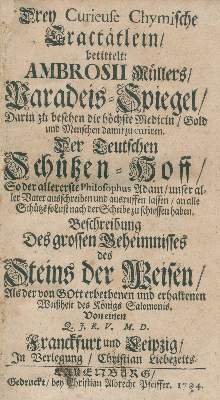 Drey Curieuse Chymische
Tractätlein/
betittelt:
AMBROSII Müllers/
Paradeis-Spiegel/
Darin zu besehen die höchste Medicin/ Gold
und Menschen damit zu curiren.
Der Teutschen
Schützen-Hoff/
So der allererste Philosophus Adam/ unser al-
ler Vater ausschreiben und ausruffen lassen/ an alle
Schütz so Lust nach der Scheibe zu schiessen haben.
Beschreibung
Des grossen Geheimnisses
des
Steins der Weisen/
Als der von GOtt erbethenen und erhaltenen
Weißheit des Königs Salomonis.
Von einem
Q. J. R. V. M. D.
Franckfurt und Leipzig/
In Verlegung/ Christian Liebezeits.
Gedruckt/ bey Christian Albrecht Pfeiffer. 1704.